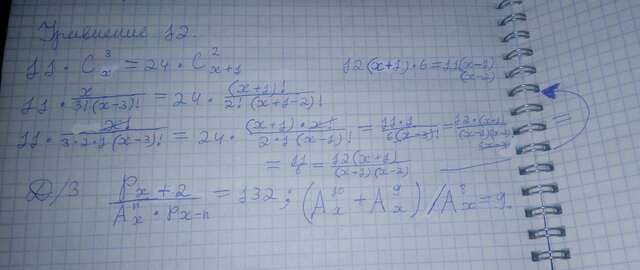 Уравнение 12.
11 · C_x^3 = 24 · C_{x+1}^2
12(x+1) · 6 = 11(x-1)(x-2)
11 · x/(3!(x-3)!) = 24 · (x+1)!/(2!(x+1-2)!)
11 · x!/(3·2·1(x-3)!) = 24 · ((x+1)·x!)/(2·1(x-1)!) =
= 11 = 12(x+1)/((x-1)(x-2))
Д/З P_{x+2}/(A_x^n · P_{x-n}) = 132; (A_x^{10} + A_x^9)/A_x^8 = 9.